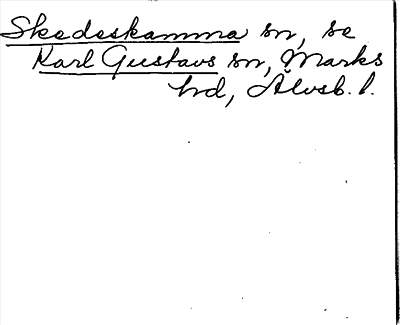 Skedeskamma sn, se
Karl Gustavs sn, Marks
hd, Älvsb. l.